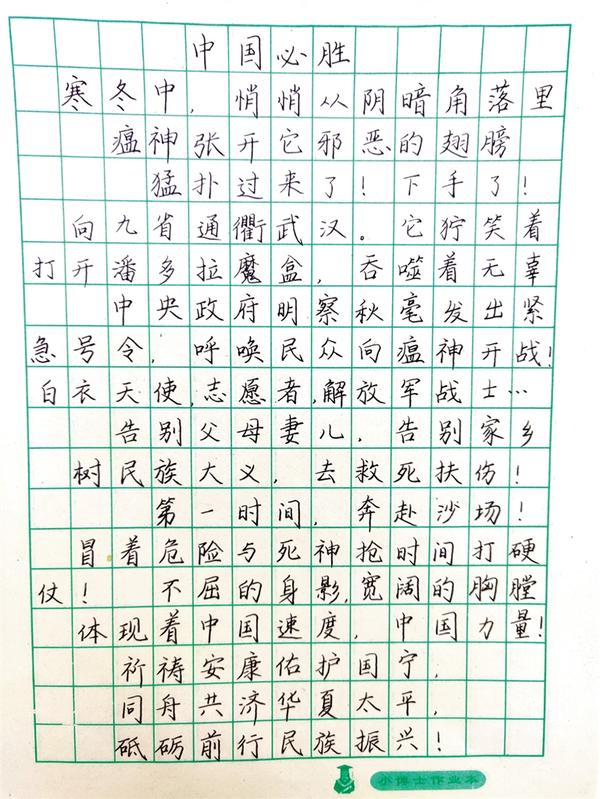 中国必胜
寒冬中，悄悄从阴暗角落里
瘟神张开它邪恶的翅膀
猛扑过来了！下手了！
向九省通衢武汉。它狞笑着
打开潘多拉魔盒，吞噬着无辜
中央政府明察秋毫发出紧
急号令，呼唤民众向瘟神开战！
白衣天使，志愿者，解放军战士…
告别父母妻儿，告别家乡
树民族大义，去救死扶伤！
第一时间，奔赴沙场！
冒着危险与死神抢时间打硬
仗！不屈的身影，宽阔的胸膛
体现着中国速度，中国力量！
祈祷安康佑护国宁，
同舟共济华夏太平，
砥砺前行民族振兴！
小博士作业本